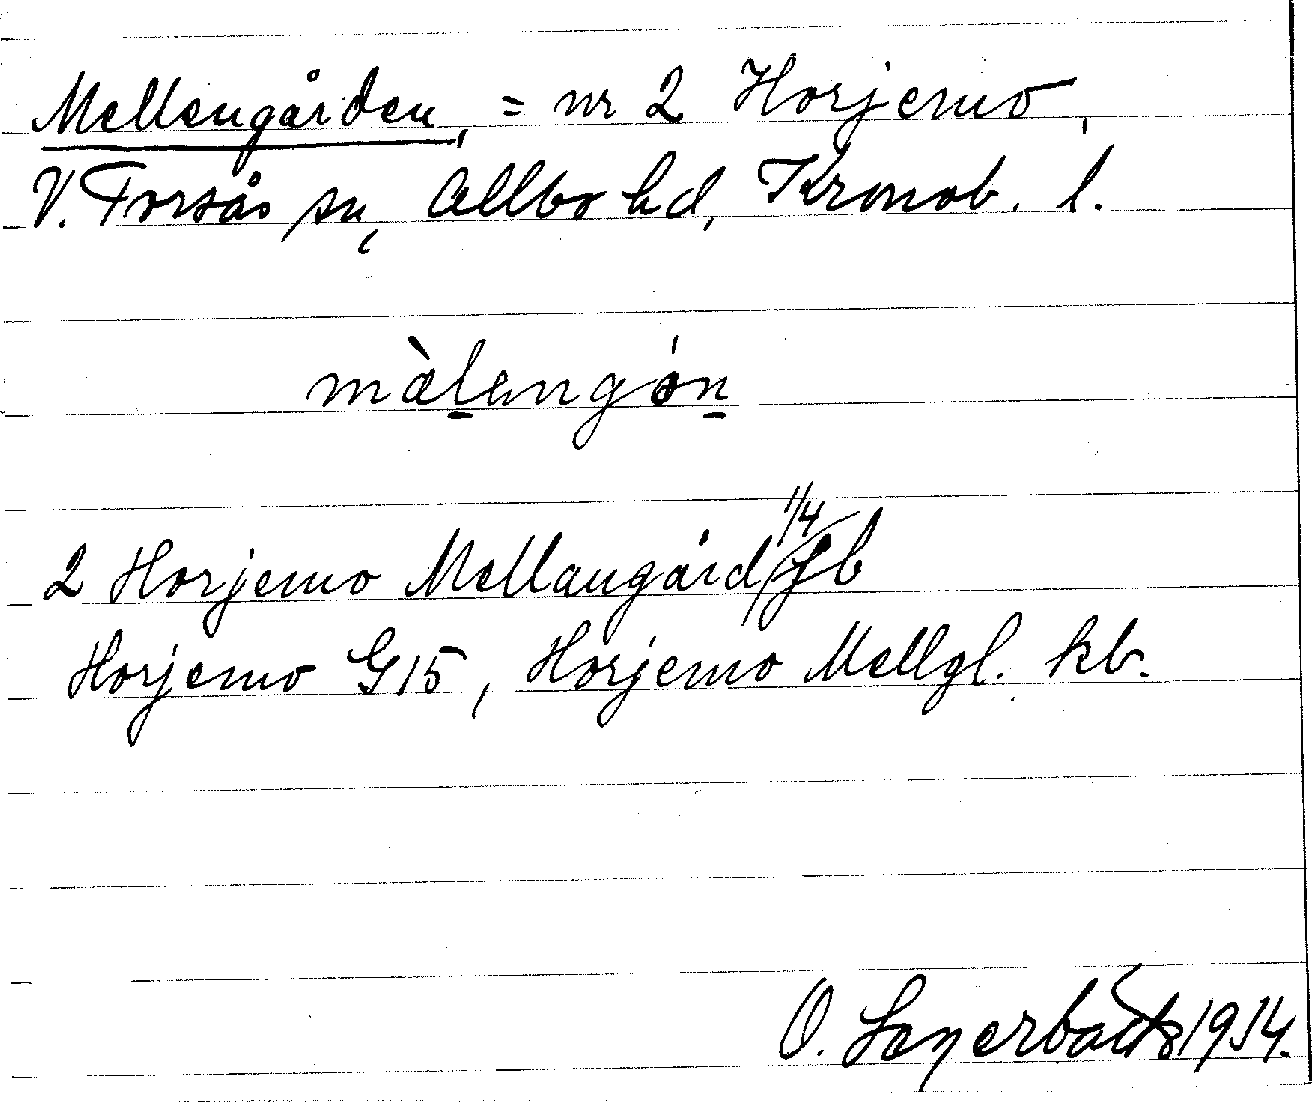 Mellengården, = nr 2 Horjemo,
V. Torsås sn, Allbo hd, Kronob. l.
màlengón
2 Horjemo Mellangård 1/4 Jb
Horjemo G15, Horjemo Mellgl. kb.
O. 1934.